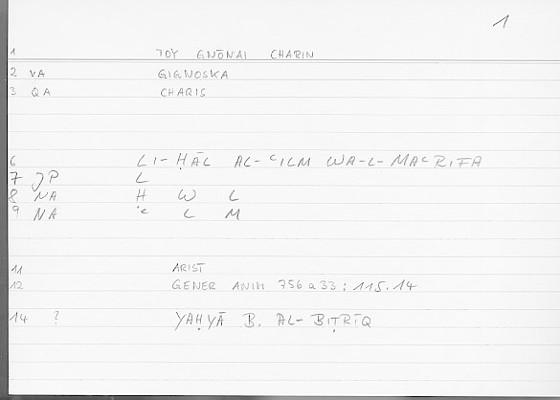 1
1 TOY GNŌNAI CHARIN
2 VA GIGNOSKA
3 QA CHARIS
6 LI-ḤĀL AL-ʿILM WA-L-MAʿRIFA
7 JP L
8 NA H W L
9 NA ʿ L M
11 ARIST
12 GENER ANIM 756a33; 115.14
14 ? YAḤYĀ B. AL-BIṬRĪQ